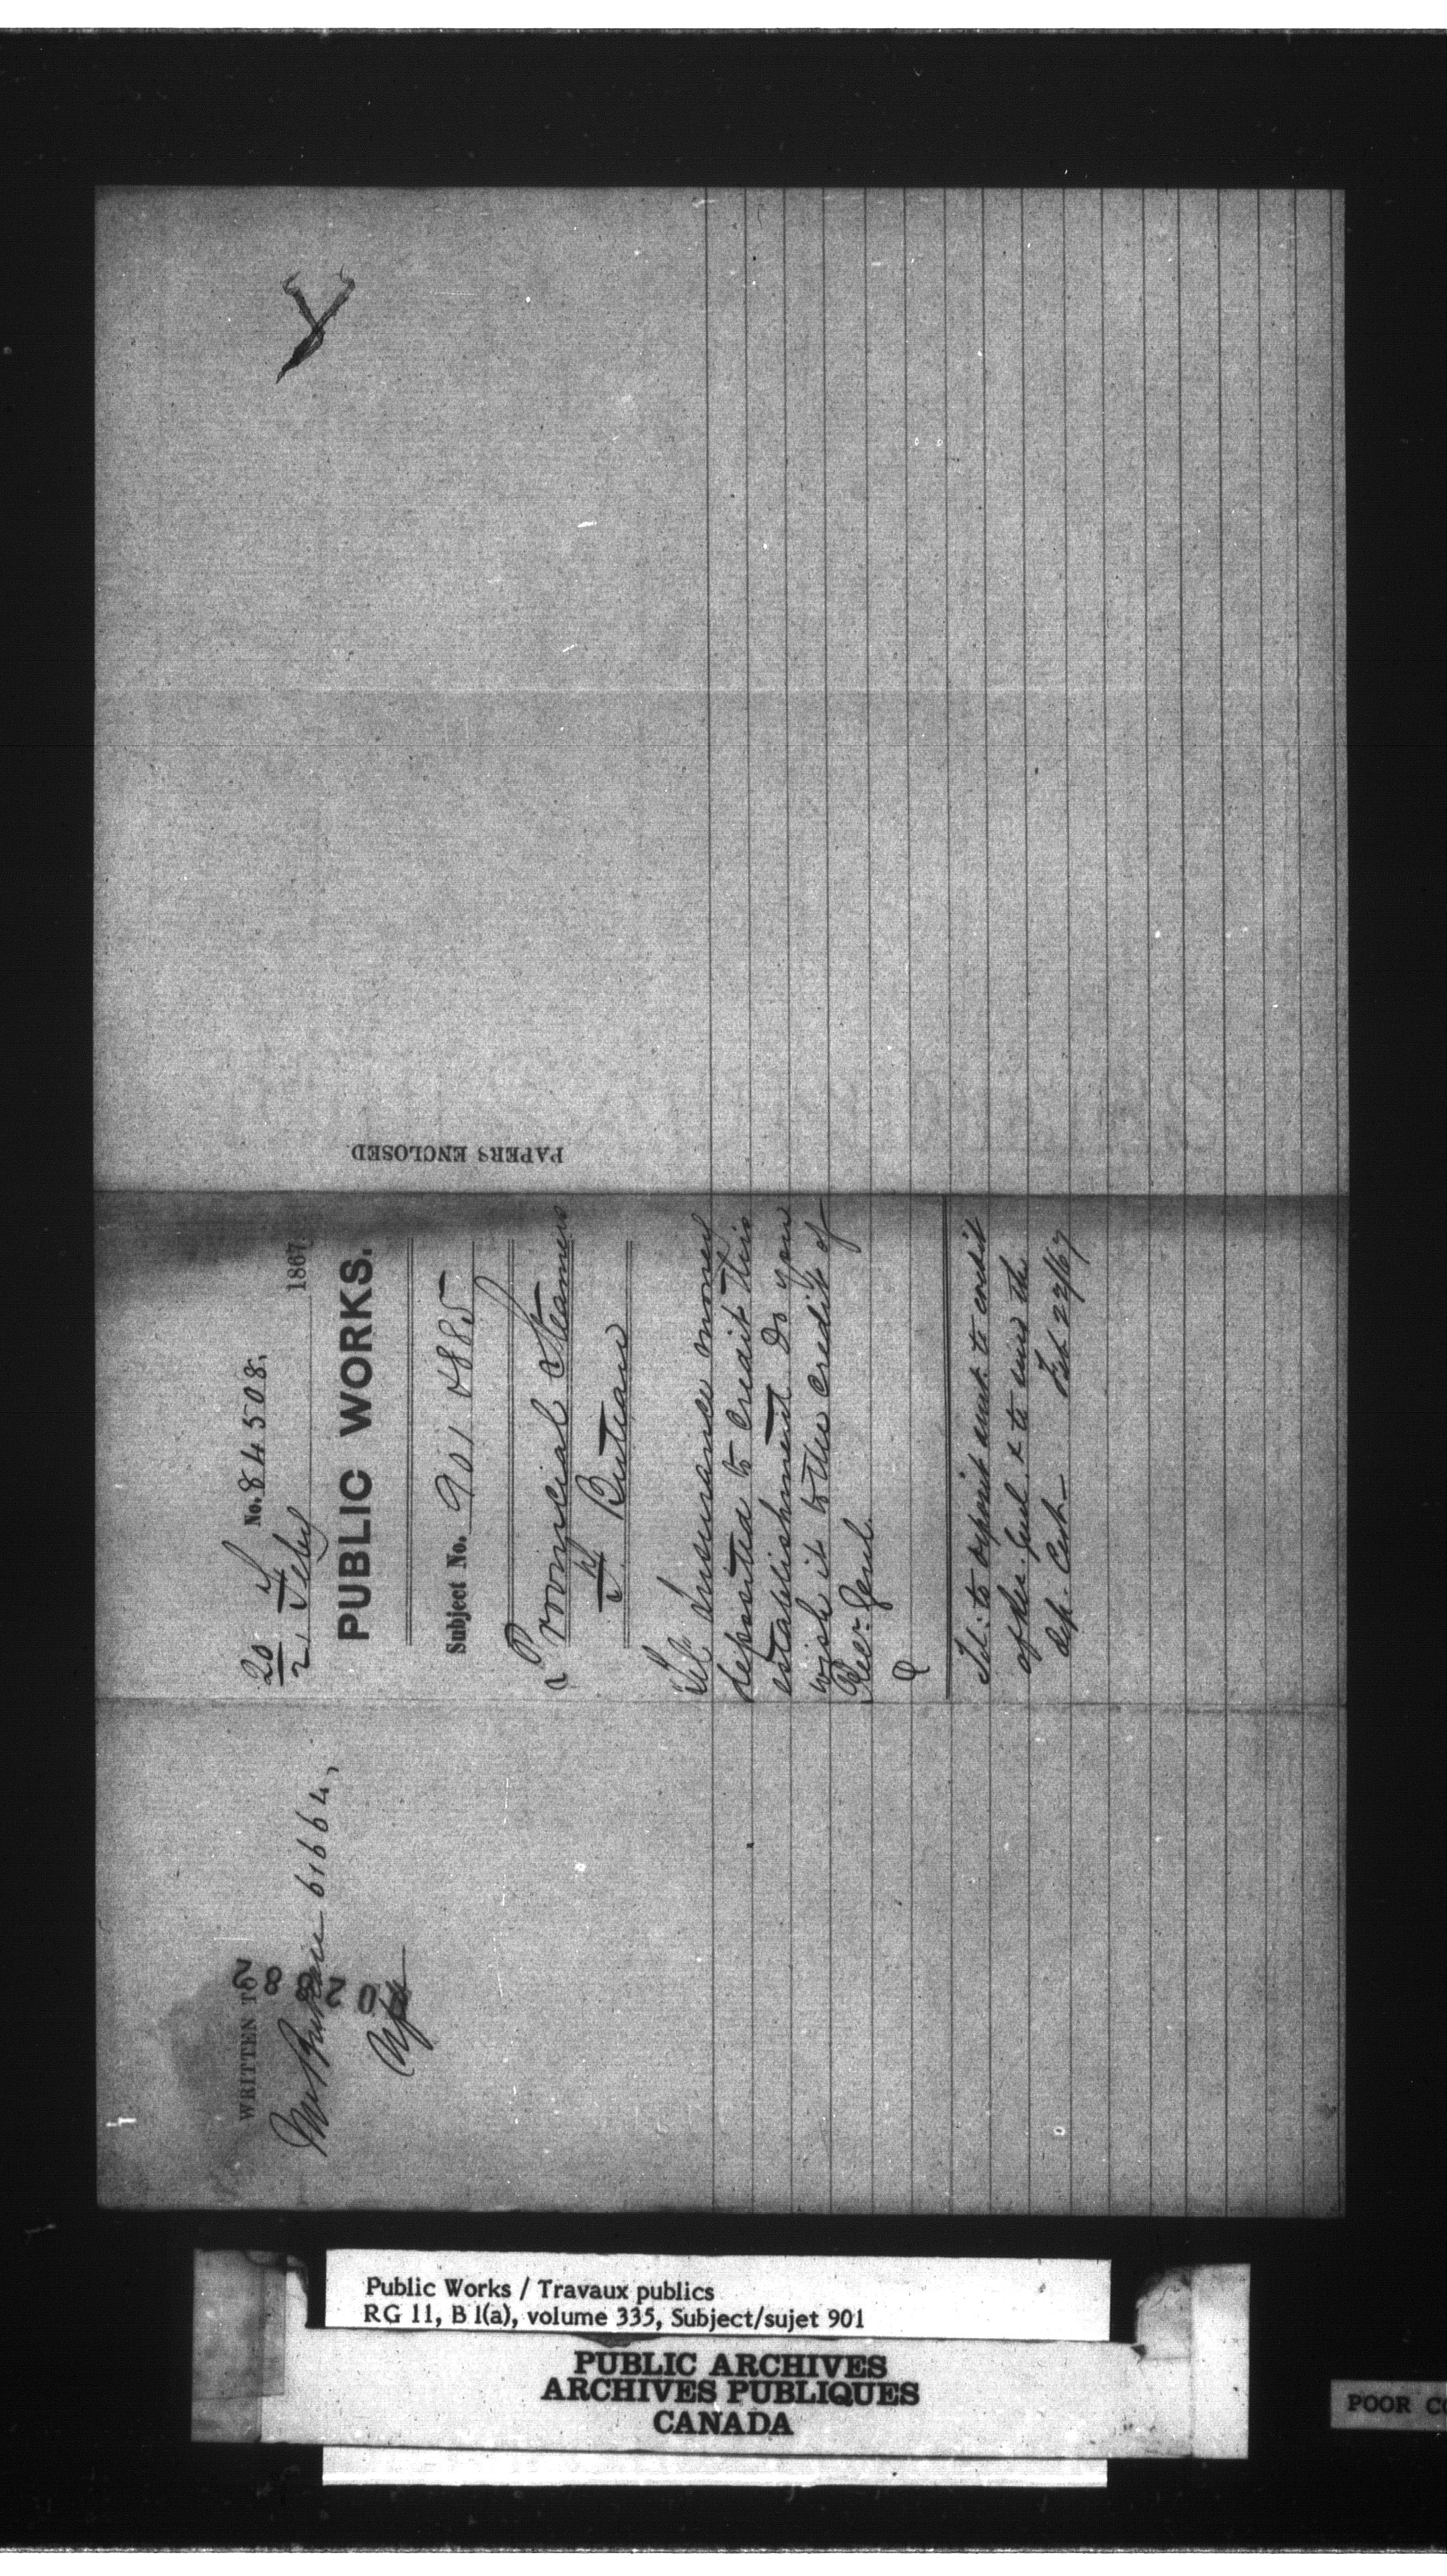 WRITTEN TO
Mr Buteau 61664,
20282
No. 84508.
20
2
Feby 1867.
PUBLIC WORKS.
Subject No. 901 4885
Provincial Steamers
F Buteau
Tel. Insurance money
deposited to credit this
establishment. Do you
wish it to the credit of
Rec. Genl.
Tel: to deposit amt. to credit
of Rec. Genl. & to send the
dep. Cert. Feb 22/67
PAPERS ENCLOSED
Public Works / Travaux publics
RG 11, B 1(a), volume 335, Subject/sujet 901
PUBLIC ARCHIVES
ARCHIVES PUBLIQUES
CANADA
POOR CO